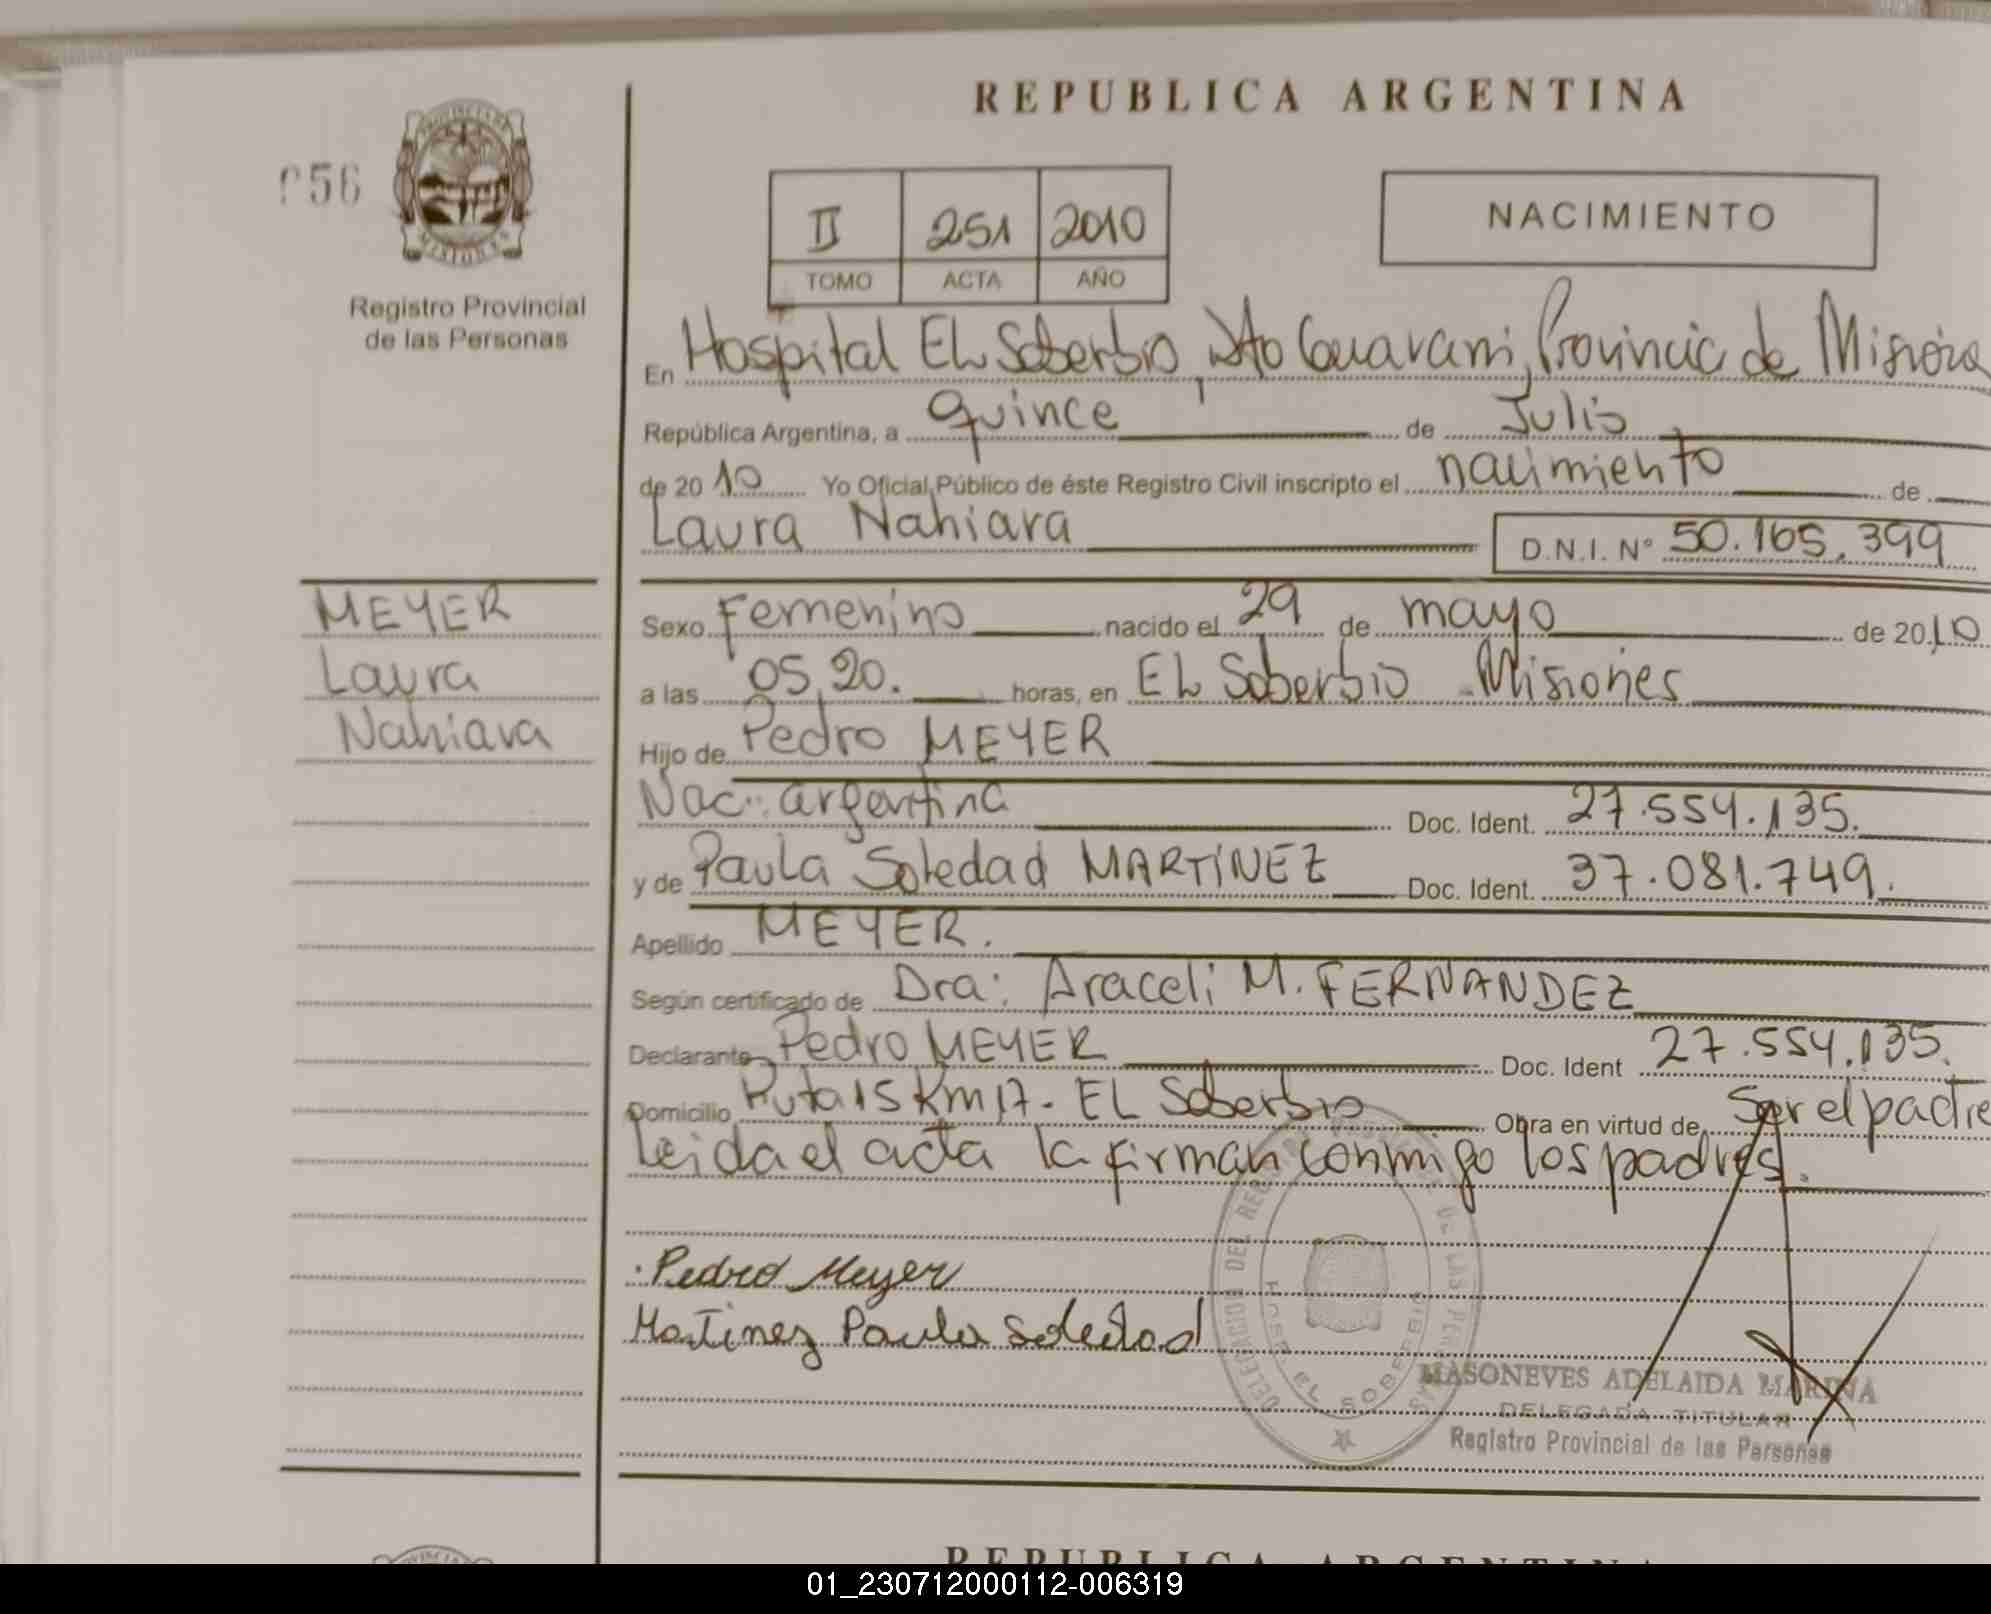 REPUBLICA ARGENTINA
056
PROVINCIA DE
MISIONES
Registro Provincial
de las Personas
II 251 2010
TOMO ACTA AÑO
NACIMIENTO
En Hospital EL Soberbio, Dto Guarani, Provincia de Misiones
República Argentina, a quince de Julio
de 2010 Yo Oficial Público de éste Registro Civil inscripto el nacimiento de
Laura Nahiara D.N.I. N° 50.165.399
MEYER
Laura
Nahiara
Sexo Femenino nacido el 29 de mayo de 2010
a las 05,20. horas, en EL Soberbio Misiones
Hijo de Pedro MEYER
Nac: argentina Doc. Ident. 27.554.135.
y de Paula Soledad MARTINEZ Doc. Ident. 37.081.749.
Apellido MEYER.
Según certificado de Dra: Araceli M. FERNANDEZ
Declarante Pedro MEYER Doc. Ident 27.554.135.
Domicilio Ruta 15 Km 17. EL Soberbio Obra en virtud de Ser el padre
Leida el acta la firman conmigo los padres.
Pedro Meyer
Martinez Paula Soledad
DELEGACION DEL REGISTRO PROVINCIAL DE LAS PERSONAS
HOSP. EL SOBERBIO
MASONEVES ADELAIDA MARINA
DELEGADA TITULAR
Registro Provincial de las Personas
REPUBLICA ARGENTINA
01_230712000112-006319